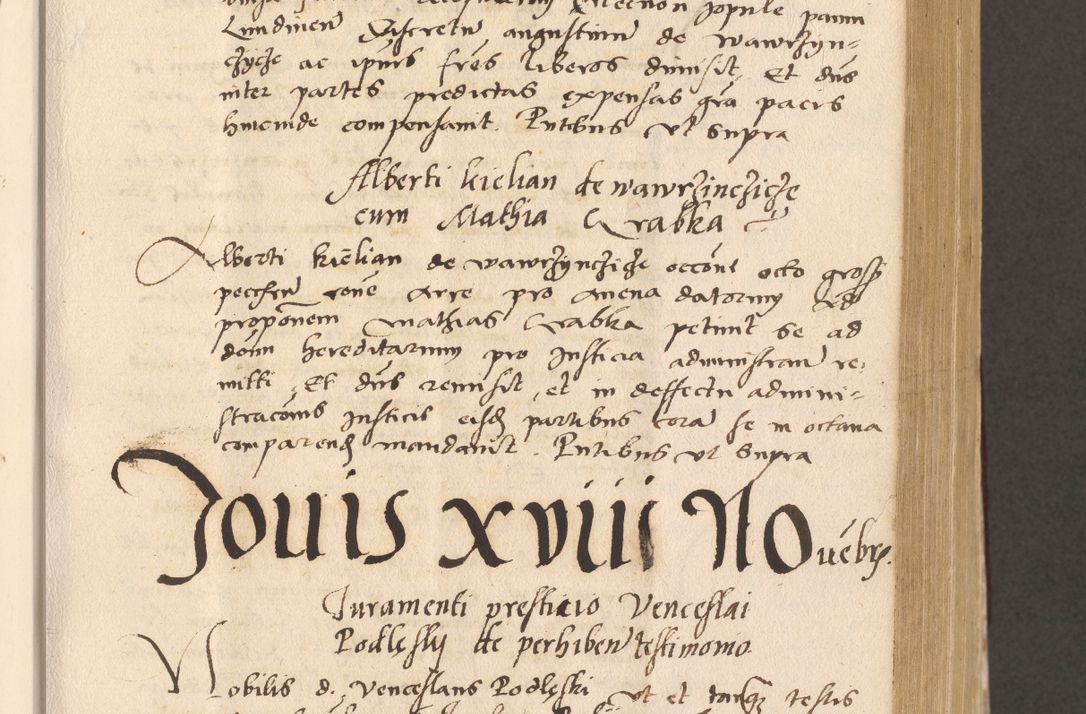 Lundinen̄ Discretū augustinū de wawrzyn=
czycze ac ipius frēs liberos dimisit, Et dnūs
inter partes predictas expensas grā pacis
hincinde compensauit. Pntibus vt supra
Alberti kielian de wawrzinczicze
cum Mathia Grabka
Alberti kielian de wawrzynczicze occōne octo gross
peccūn rōne arre pro auena datorum Ad
propōnem Mathias Grabka petiuit se ad
dōm hereditarium pro Iusticia administran̄ re=
mitti, Et dnūs remisit, et in deffectu admini=
stracōnis Iusticie eisd partibus corā se in octaua
comparend mandauit. Pntibus vt supra
Jouis xviii Nouēbrs.
Iuramenti prestitio Venceslai
Podlęsky de perhiben̄ testimonio
Nobilis d. Venceslaus Podlęski vt et tanq testis